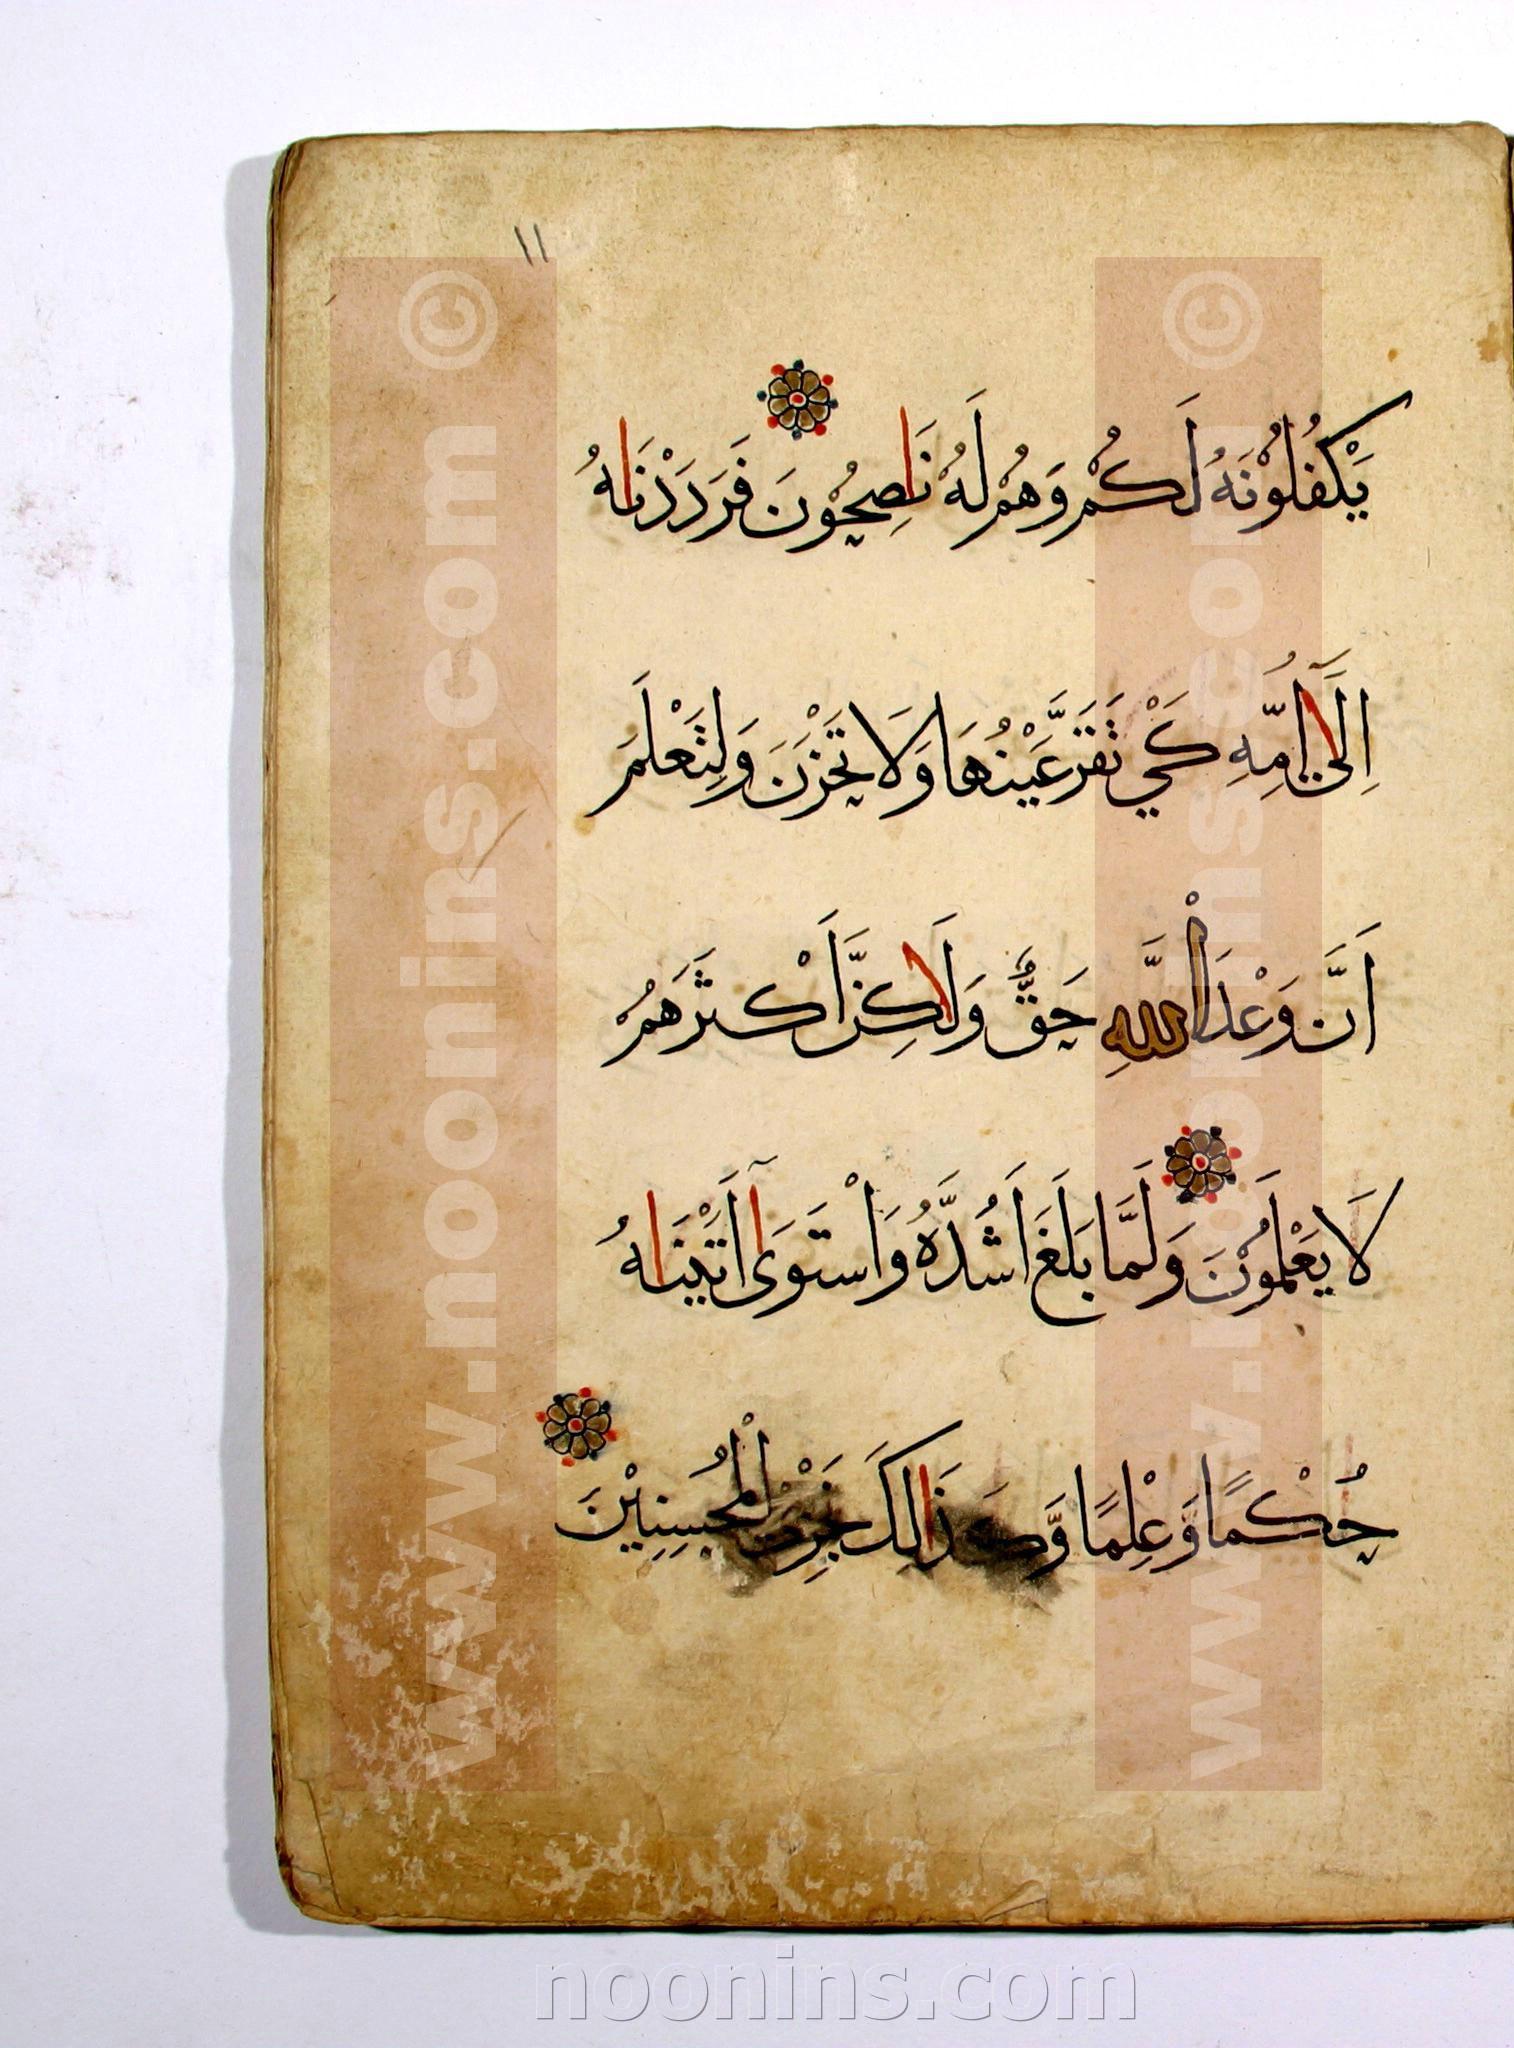 ١١
يَكْفُلُوْنَهُ لَكُمْ وَهُمْ لَهُ نَاصِحُوْنَ فَرَدَدْنَاهُ
اِلَىٰٓ اُمِّهِ كَيْ تَقَرَّ عَيْنُهَا وَلَا تَحْزَنَ وَلِتَعْلَمَ
اَنَّ وَعْدَ اللَّهِ حَقٌّ وَلَاكِنَّ اَكْثَرَهُمْ
لَا يَعْلَمُوْنَ وَلَمَّا بَلَغَ اَشُدَّهُ وَاسْتَوَىٰٓ اٰتَيْنَاهُ
حُكْمًا وَّعِلْمًا وَّكَذَالِكَ نَجْزِي الْمُحْسِنِيْنَ
www.noonins.com ©
www.noonins.com ©
noonins.com